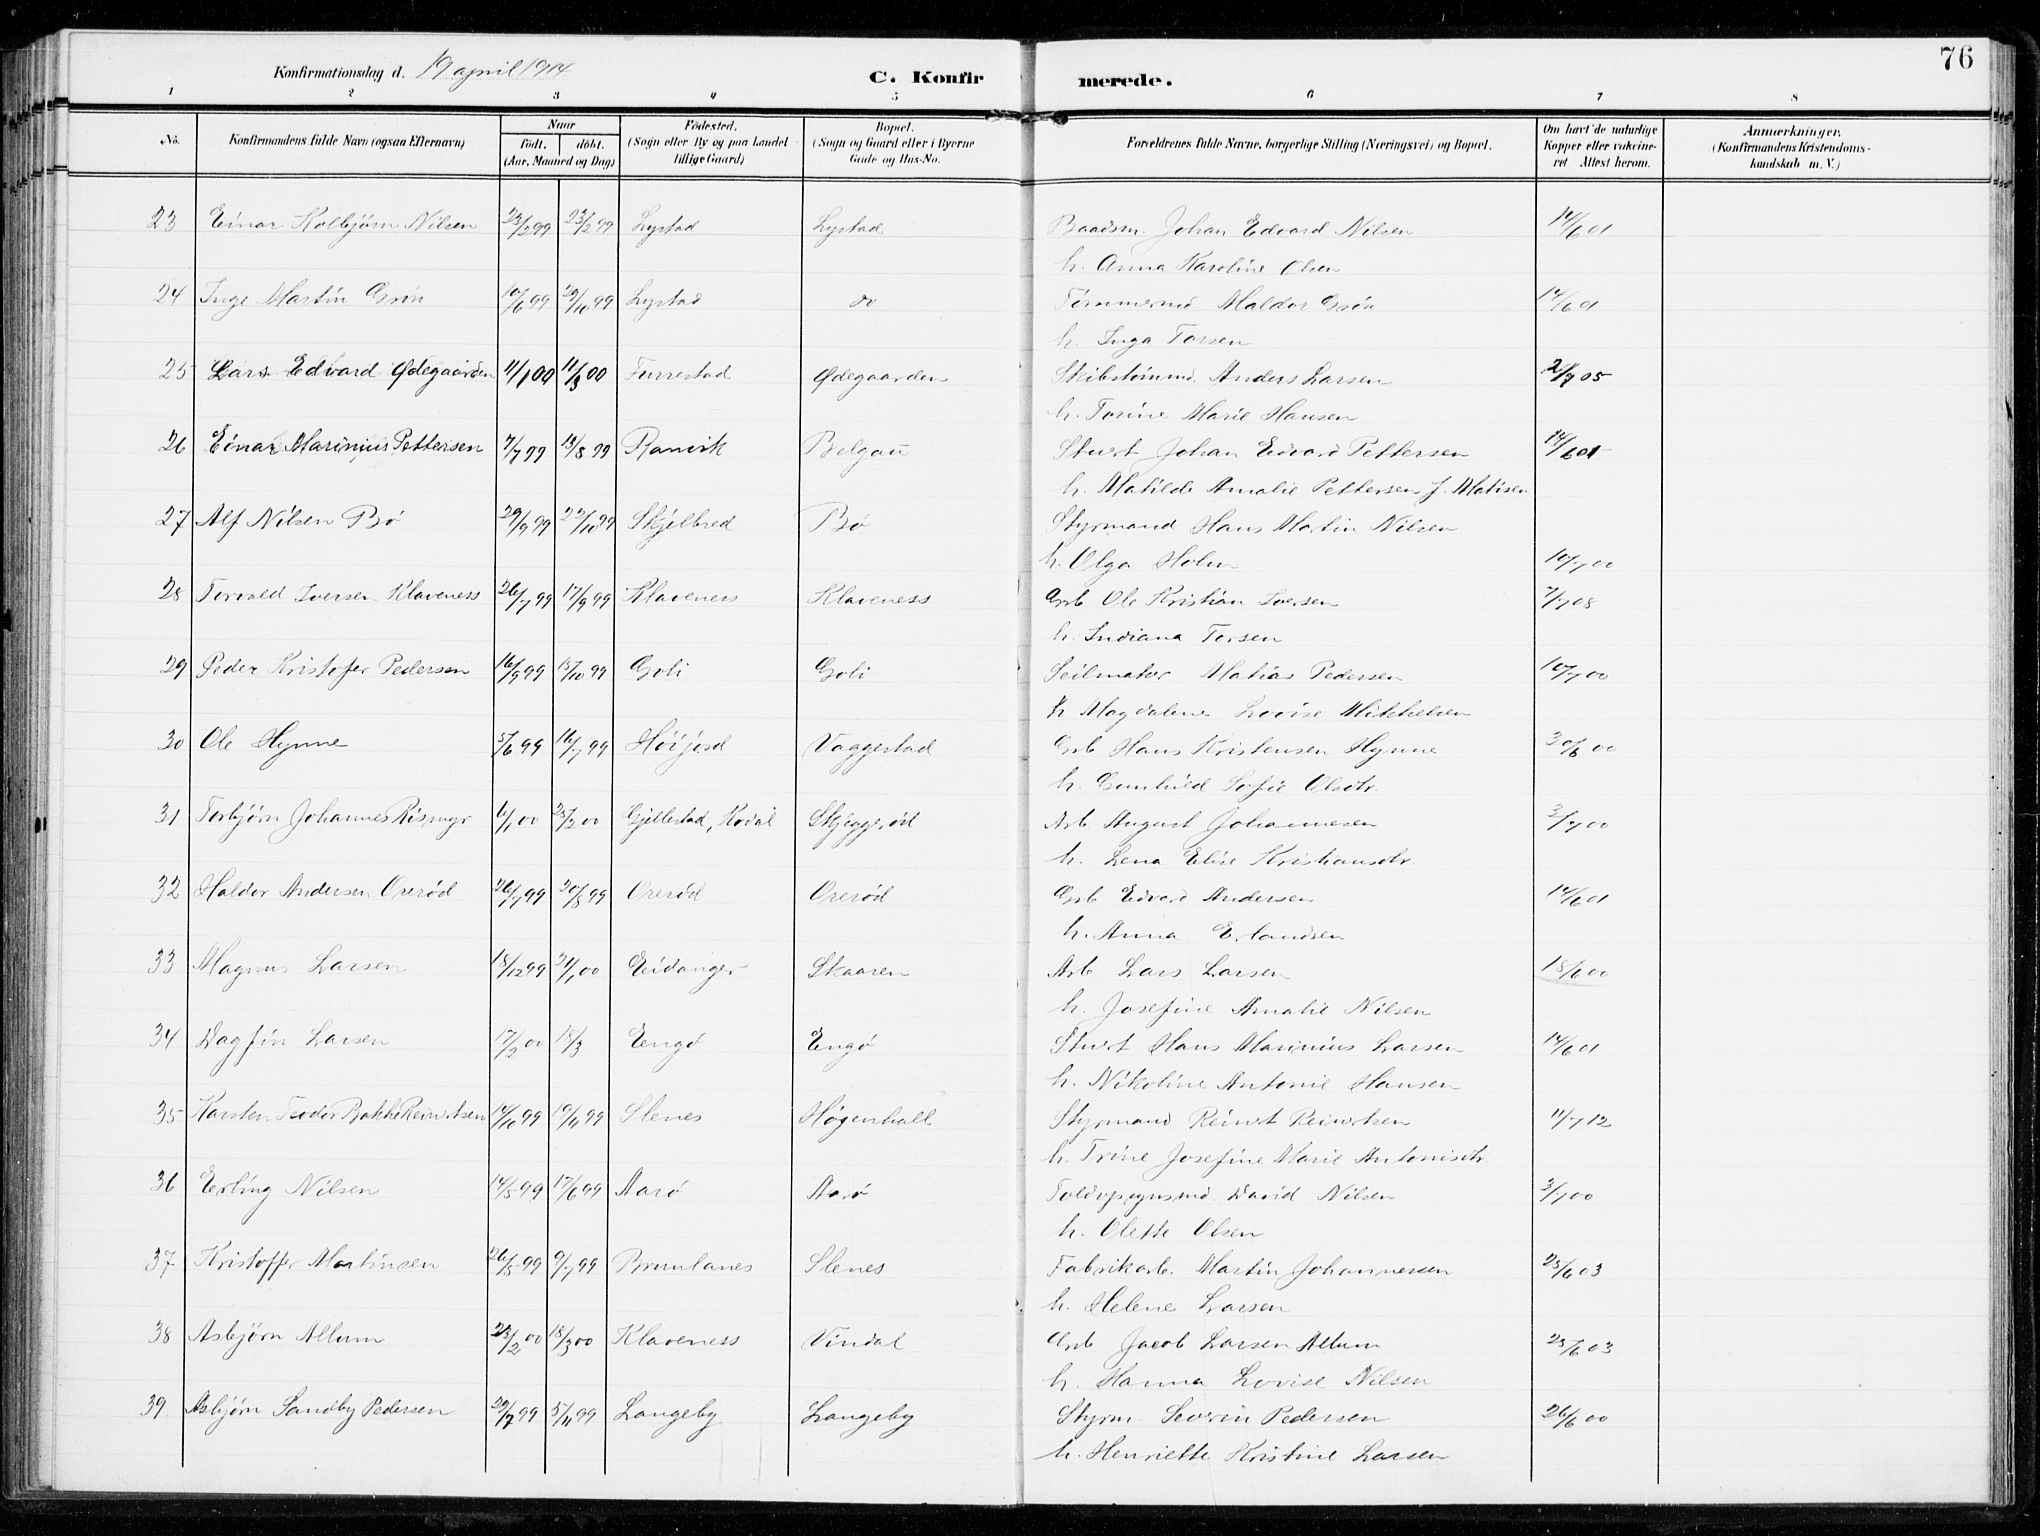 76
Konfirmationsdag d. 19 april 1914
C. Konfirmerede.
1 2 3 4 5 6 7 8
No. Konfirmandens fulde Navn (ogsaa Efternavn) Naar født. døbt. (Aar, Maaned og Dag) Fødested. (Sogn eller By og paa Landet tillige Gaard) Bopæl. (Sogn og Gaard eller i Byerne Gade og Hus-No. Forældrenes fulde Navne, borgerlige Stilling (Næringsvei) og Bopæl. Om havt de naturlige Kopper eller vakcineret Attest herom. Anmærkninger. (Konfirmandens Kristendomskundskab m. V.)
23 Einar Kolbjørn Nilsen 23/2 99 23/2 99 Lystad Lystad Baadsm. Johan Edvard Nilsen 14/6 01
h. Anna Karoline Olsen
24 Inge Martin Grøn 10/6 99 29/10 99 Lystad do Tømmermd. Haldor Grøn 14/6 01
h. Inga Torsen
25 Lars Edvard Ødegaarden 11/1 00 11/3 00 Furrestad Ødegaarden Skibstømmd. Anders Larsen 21/7 05
h. Torine Marie Hansen
26 Einar Marinius Pettersen 7/7 99 13/8 99 Ranvik Belgau Stuert Johan Edvard Pettersen 14/6 01
h. Matilde Amalie Pettersen f. Matisen
27 Alf Nilsen Bø 29/9 99 22/10 99 Skjelbred Bø Styrmand Hans Martin Nilsen
h. Olga Holm 10/7 00
28 Torvald Iversen Klaveness 26/7 99 17/9 99 Klaveness Klaveness Arb Ole Kristian Iversen 7/7 08
h. Indiana Torsen
29 Peder Kristofer Pedersen 16/9 99 15/10 99 Goli Goli Seilmaker Matias Pedersen 10/7 00
h Magdalene Lovise Mikkelsen
30 Ole Hynne 5/6 99 16/7 99 Høijord Vaggestad Arb Hans Kristensen Hynne 30/6 00
h. Gunhild Sofie Olsdtr.
31 Torbjørn Johannes Rismyr 6/1 00 25/2 00 Gjellestad, Kodal Skjeggerød Arb August Johannesen 3/7 00
h. Lena Elise Kristiansdtr.
32 Haldor Andersen Orerød 26/7 99 20/8 99 Orerød Orerød Arb Edvard Andersen 14/6 01
h. Anna Erlandsen
33 Magnus Larsen 18/12 99 21/1 00 Eidanger Skaaren Arb Lars Larsen 18/6 00
h. Josefine Amalie Nilsen
34 Dagfin Larsen 17/2 00 18/3 Engø Engø Stuert Hans Marinius Larsen 14/6 01
h. Nikoline Antonie Hansen
35 Karsten Teodor Bakke Reinertsen 14/10 99 19/11 99 Slenes Høgenhall Styrmand Reinert Reinertsen 11/7 12
h. Trine Josefine Marie Antonisdtr.
36 Erling Nilsen 14/5 99 17/6 99 Aarø Aarø Toldopsynsmd. David Nilsen 3/7 00
h. Olette Olsen
37 Kristoffer Martinsen 26/5 99 9/7 99 Brunlanes Slenes Fabrikarb. Martin Johannessen 25/6 03
h. Helene Larsen
38 Asbjørn Allum 23/2 00 18/3 00 Klaveness Vindal Arb Jacob Larsen Allum 25/6 03
h. Hanna Lovise Nilsen
39. Asbjørn Sandby Pedersen 29/7 99 5/11 99 Langeby Langeby Styrm. Severin Pedersen 26/6 00
h. Henriette Kristine Larsen